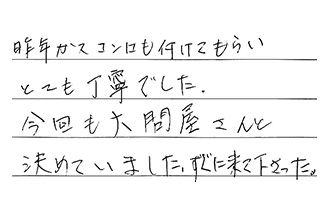 昨年ガスコンロも付けてもらい
とても丁寧でした.
今回も大問屋さんと
決めていました.すぐに来て下さった。